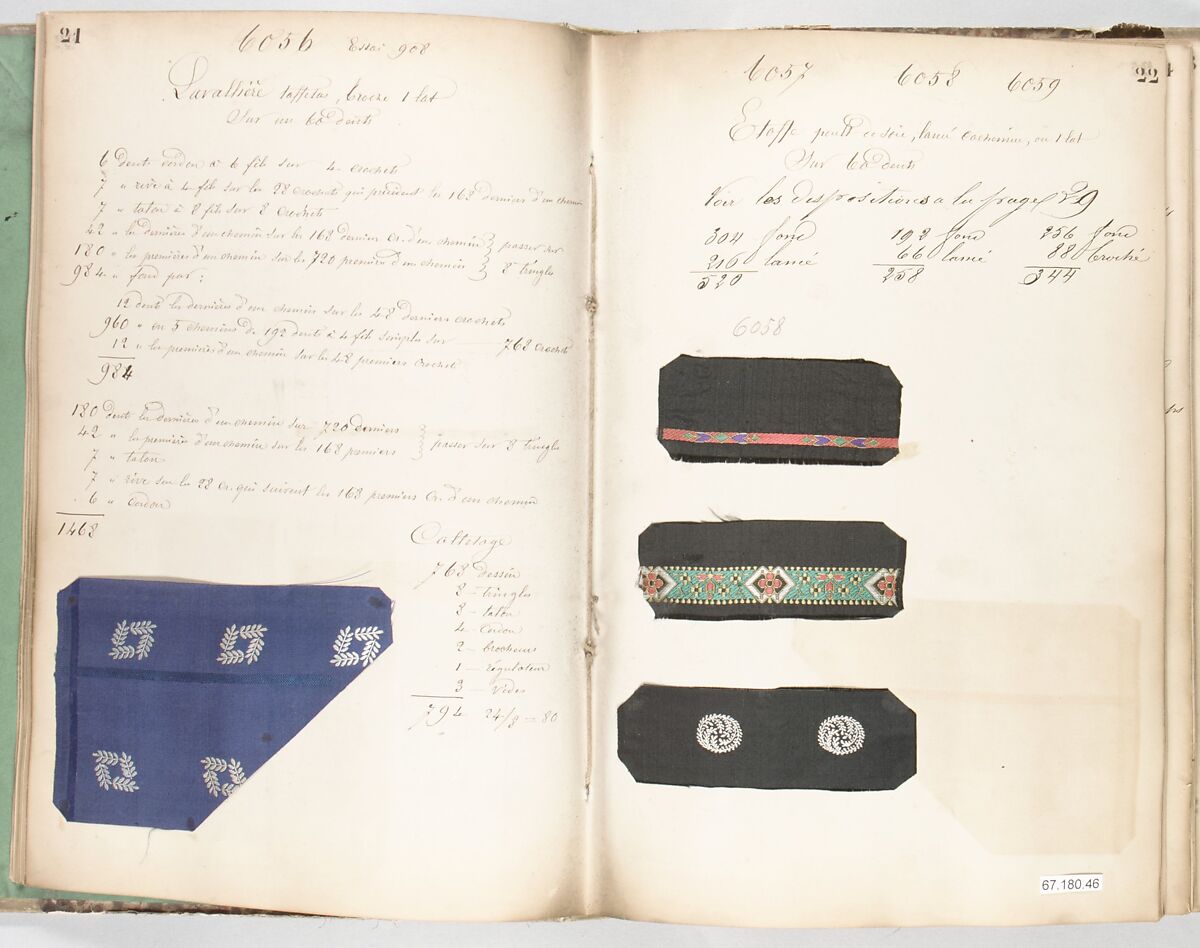 21
6056 Essai 908
Lavallière taffetas, broché 1 lat
Sur un 60 dents
6 dents cordon à 6 fils sur 4 crochets
7 " rive à 4 fils sur les 28 crochets qui précèdent les 168 derniers d'un chemin
7 " talon à 8 fils sur 8 crochets
42 " les dernières d'un chemin sur les 168 derniers Cr. d'un chemin } passer sur
180 " les premières d'un chemin sur les 720 premiers d'un chemin } 8 tringles
984 " fond par :
12 dents les dernières d'un chemin sur les 48 derniers crochets
960 " en 5 chemins de 192 dents à 4 fils simples sur 768 crochets
12 " les premières d'un chemin sur les 48 premiers crochets
984
180 dents les dernières d'un chemin sur 720 derniers
42 " les premières d'un chemin sur les 168 premiers } passer sur 8 tringles
7 " talon
7 " rive sur les 28 Cr. qui suivent les 168 premiers Cr. d'un chemin
6 " cordon
1468
Colletage
768 dessin
8 — tringles
8 — talon
4 — cordon
2 — brocheurs
1 — régulateur
3 — vides
794 24/8 = 80
22
6057 6058 6059
Etoffe poult de soie, lancé cachemire, ou 1 lat
Sur 60 dents
Voir les dispositions a la page 29
304 fond 192 fond 256 fond
216 lancé 66 lancé 88 broché
520 258 344
6058
67.180.46